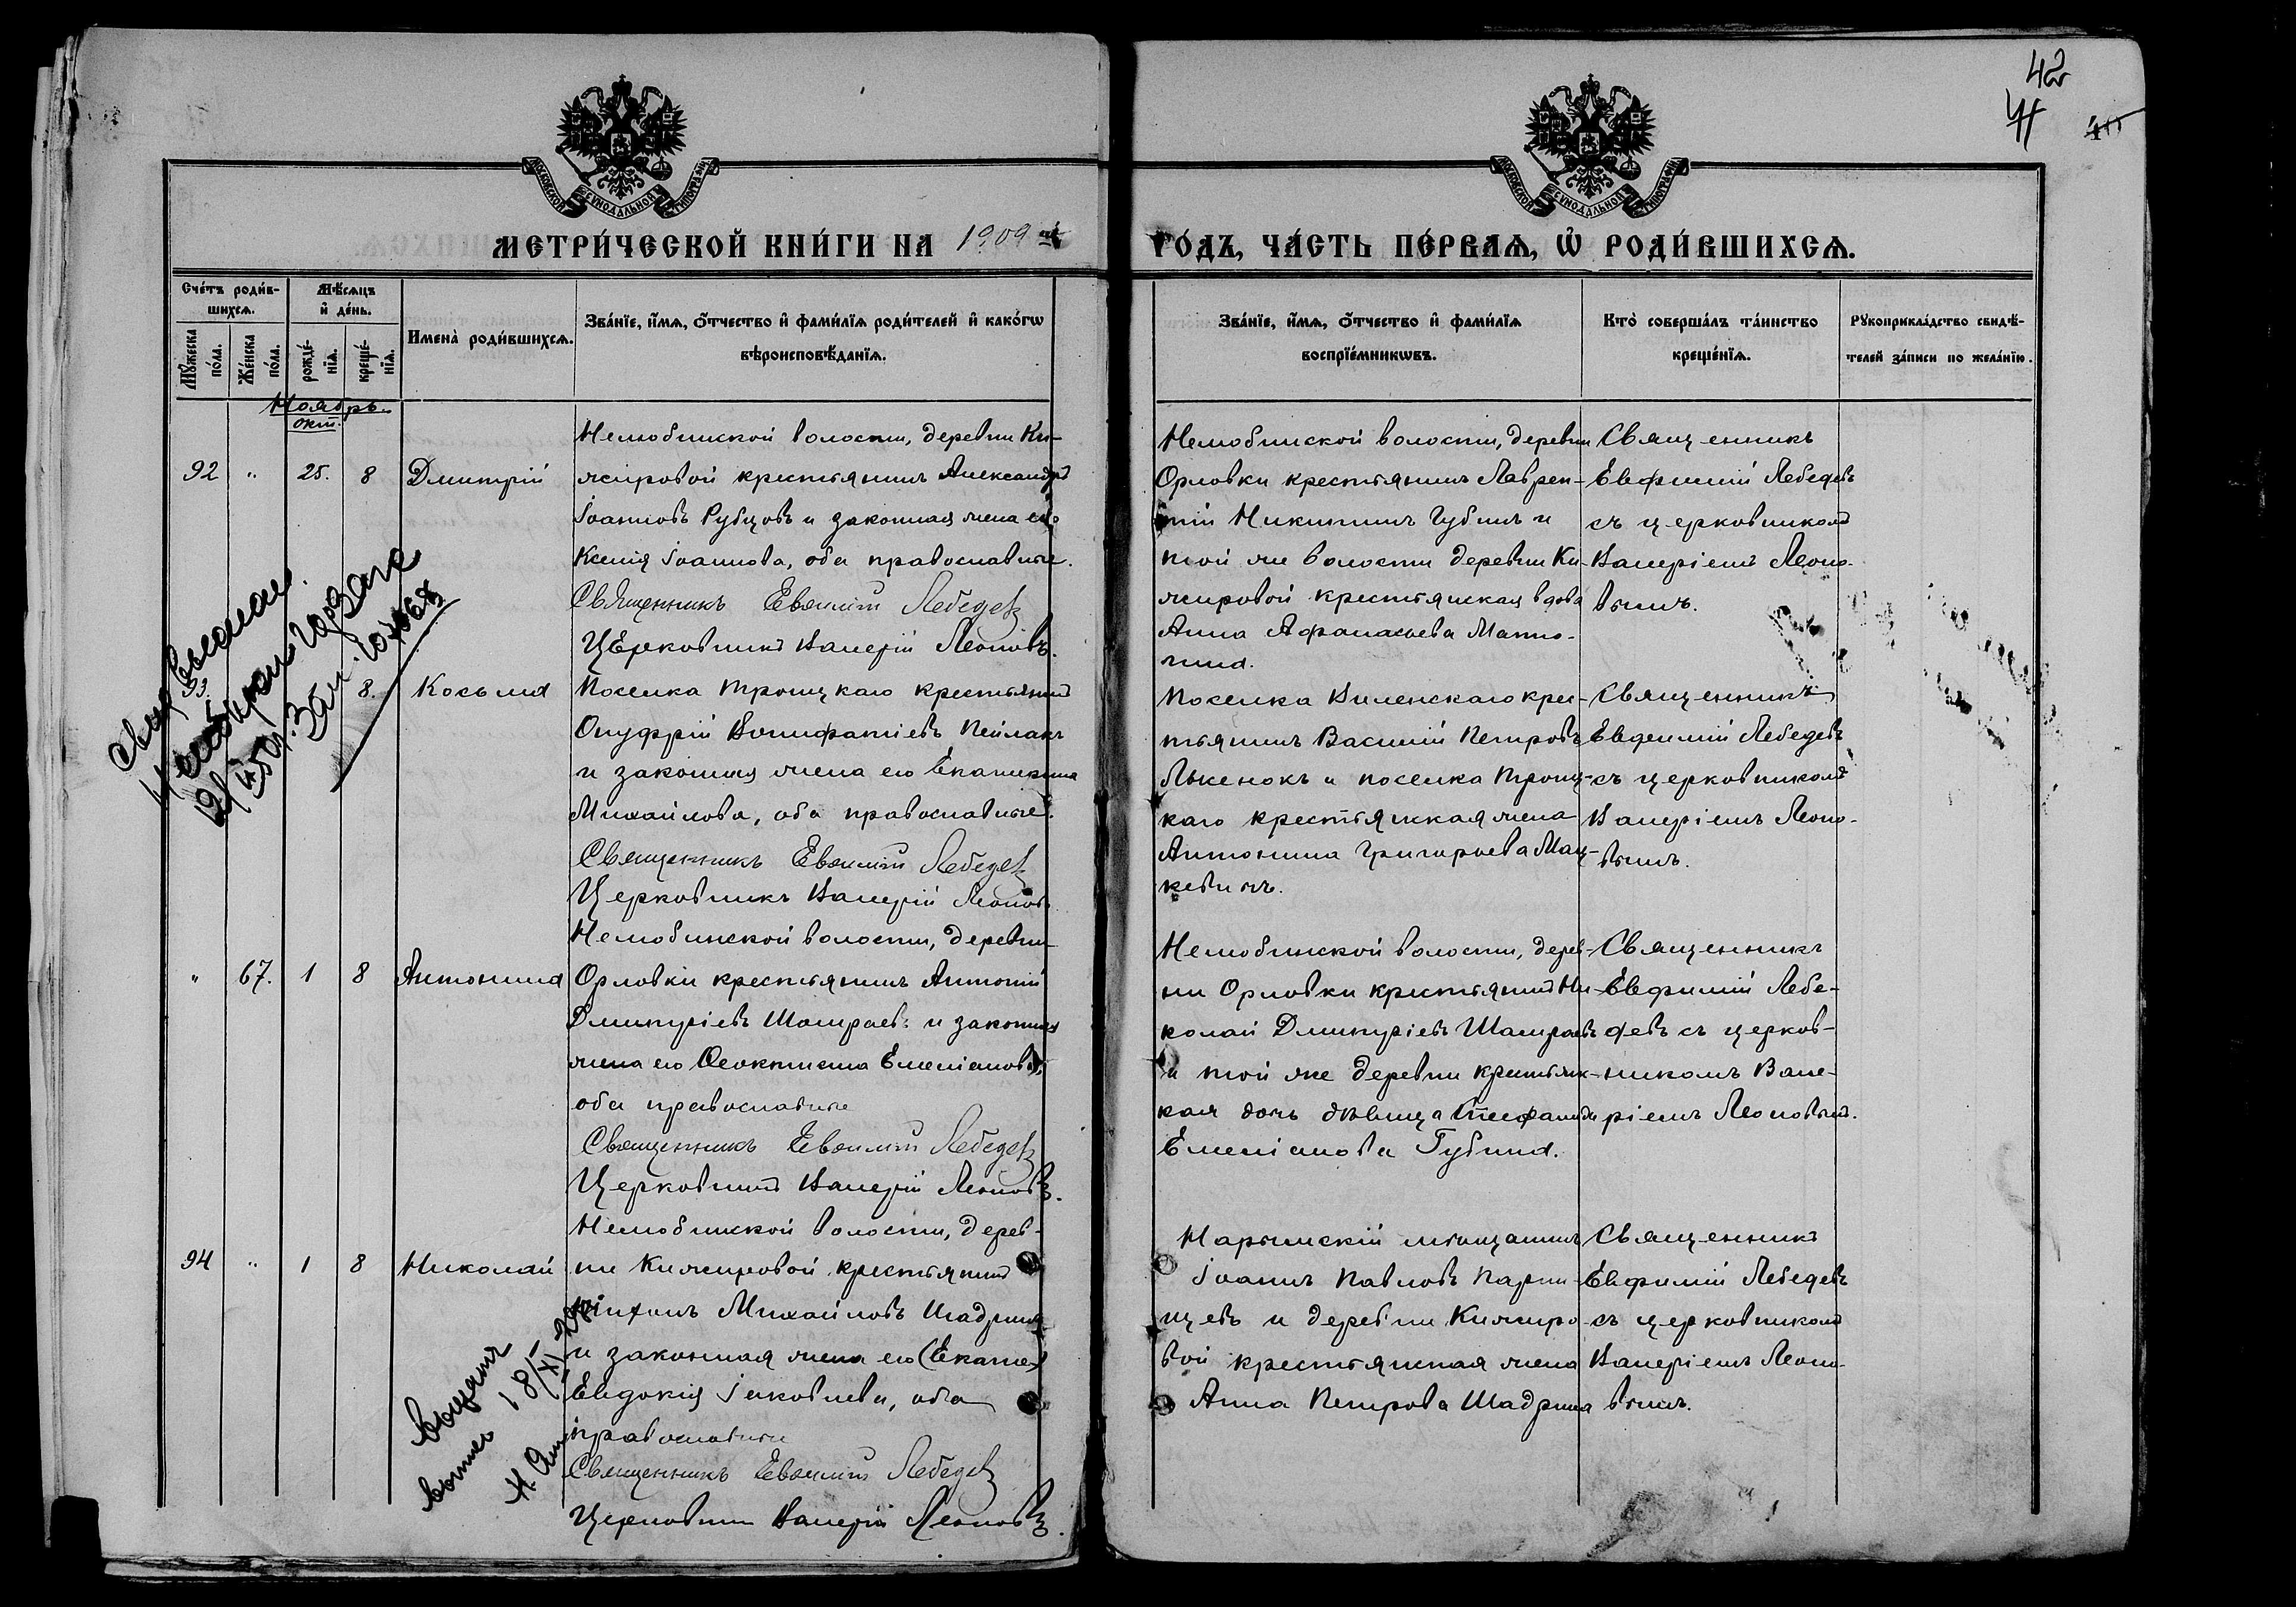 42
41
40
МОСКОВСКОЙ СѴНОДАЛЬНОЙ ТИПОГРАФІИ
МОСКОВСКОЙ СѴНОДАЛЬНОЙ ТИПОГРАФІИ
МЕТРИ́ЧЕСКОЙ КНИ́ГИ НА 1909 ый
ГО́ДЪ, ЧА́СТЬ ПЕ́РВАѦ, Ѡ҆ РОДИ́ВШИХСѦ.
Сче́тъ роди́в-
шихсѧ.
Мѣ́сѧцъ
и҆ де́нь.
Мꙋ́жеска
по́ла.
Же́нска
по́ла.
рожде́-
нїѧ.
креще́-
нїѧ.
Имена̀ роди́вшихсѧ.
Зва́нїе, и҆́мѧ, ѻ҆́тчество и҆ фами́лїѧ роди́телей и҆ како́гѡ
вѣроисповѣ́данїѧ.
Зва́нїе, и҆́мѧ, ѻ҆́тчество и҆ фами́лїѧ
воспрїе́мникѡвъ.
Кто̀ соверша́лъ та́инство
креще́нїѧ.
Рꙋкоприкла́дство свидѣ́-
телей за́писи по жела́нїю.
Ноябрь.
окт.
92 " 25. 8 Дмитрій
Нелюбинской волости, деревни Ки-
жировой крестьянинъ Александръ
Іоанновъ Рубцовъ и законная жена его
Ксенія Іоаннова, оба православные.
Священникъ Евѳимій Лебедевъ
Церковникъ Валерій Леоновъ.
Нелюбинской волости, деревни
Орловки крестьянинъ Лаврен-
тій Никитинъ Губинъ и
той же волости деревни Ки-
жировой крестьянская вдова
Анна Афанасьева Матю-
нина.
Священникъ
Евфимій Лебедевъ
съ церковникомъ
Валеріемъ Леоно-
вымъ.
93. 8. Косьма
Поселка Троицкаго крестьянинъ
Онуфрій Вонифатіевъ Пейлакъ
и законная жена его Екатерина
Михайлова, оба православные.
Священникъ Евѳимій Лебедевъ
Церковникъ Валерій Леоновъ
Поселка Виленскаго кре-
стьянинъ Василій Петровъ
Лысенокъ и поселка Троиц-
каго крестьянская жена
Антонина Григорьева Мац-
кевичъ.
Священникъ
Евфимій Лебедевъ
съ церковникомъ
Валеріемъ Леоно-
вымъ.
" 67. 1 8 Антонина
Нелюбинской волости, деревни
Орловки крестьянинъ Антоній
Дмитріевъ Шаираевъ и законная
жена его Ѳеоктиста Емеліанова,
оба православные
Священникъ Евѳимій Лебедевъ
Церковникъ Валерій Леоновъ.
Нелюбинской волости, дерев-
ни Орловки крестьянинъ Ни-
колай Дмитріевъ Шаираевъ
и той же деревни крестьянс-
кая дочь дѣвица Стефанида
Емеліанова Губина.
Священникъ
Евфимій Лебе-
девъ съ церков-
никомъ Вале-
ріемъ Леоновымъ.
94 " 1 8 Николай
Нелюбинской волости, дерев-
ни Кижировой крестьянинъ
Михайловъ Шадринъ
и законная жена его (Екате)
Евдокія Іаковлева, оба
православные
Священникъ Евѳимій Лебедевъ
Церковникъ Валерій Леоновъ.
Нарымскій мѣщанинъ
Іоаннъ Павловъ Парши-
цевъ и деревни Кижиро-
вой крестьянская жена
Анна Петрова Шадрина
Священникъ
Евфимій Лебедевъ
съ церковникомъ
Валеріемъ Леоно-
вымъ.